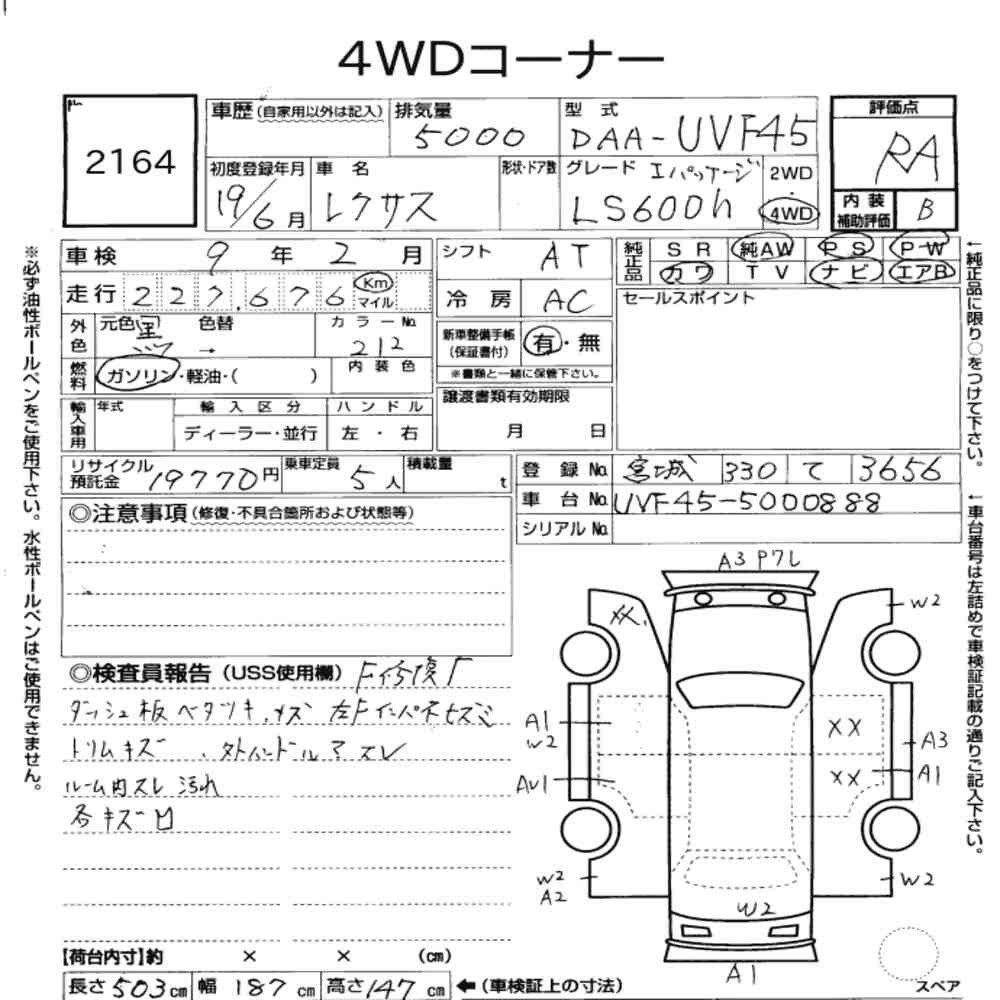 4WDコーナー
2164
車歴 (自家用以外は記入)
排気量
5000
型 式
DAA-UVF45
評価点
RA
初度登録年月
19/6月
車 名
レクサス
形状・ドア数
グレード Iパッケージ
LS600h
2WD
・
4WD
内装
補助評価
B
車検 9年2月
シフト AT
純正品
SR 純AW PS P・W
カワ TV ナビ エアB
走行 227,676 Km
マイル
冷房 AC
セールスポイント
外色
元色 黒 色替
→
カラーNo.
212
新車整備手帳
(保証書付)
有・無
※書類と一緒に保管下さい。
燃料
ガソリン・軽油・( )
内装色
輸入車用
年式
輸入区分
ディーラー・並行
ハンドル
左・右
譲渡書類有効期限
月 日
リサイクル
預託金
19770円
乗車定員
5人
積載量
t
登録No. 宮城 330 て 3656
車台No. UVF45-5000888
シリアルNo.
◎注意事項(修復・不具合箇所および状態等)
◎検査員報告(USS使用欄) F修復
ダッシュ板ベタツキ、キズ 左Fインパネヒズミ
トリムキズ、外ハンドルアスレ
ルーム内スレ汚れ
各キズ凹
A3 P7L
XX.
W2
A1
W2
XX
A3
AU1
XX
A1
W2
A2
W2
W2
A1
スペア
【荷台内寸】約 × × (cm)
長さ503cm 幅187cm 高さ147cm ←(車検証上の寸法)
※必ず油性ボールペンをご使用下さい。水性ボールペンはご使用できません。
←純正品に限り○をつけて下さい。
←車台番号は左詰めで車検証記載の通りご記入下さい。